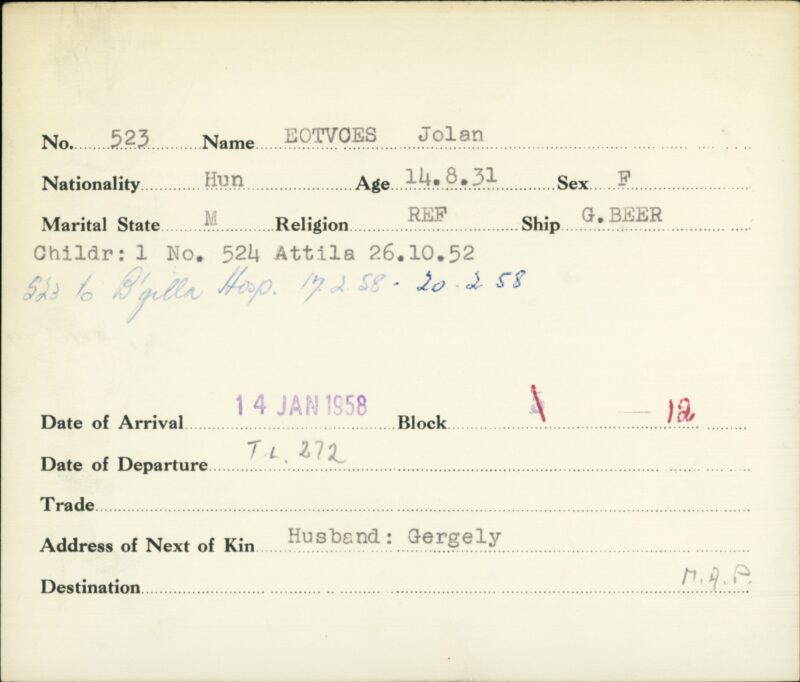 No. 523 Name EOTVOES Jolan
Nationality Hun Age 14.8.31 Sex F
Marital State M Religion REF Ship G.BEER
Childr: 1 No. 524 Attila 26.10.52
523 to B'gilla Hosp. 17.2.58 - 20.2.58
Date of Arrival 14 JAN 1958 Block — 12
Date of Departure T.L. 272
Trade
Address of Next of Kin Husband: Gergely
Destination M.A.P.